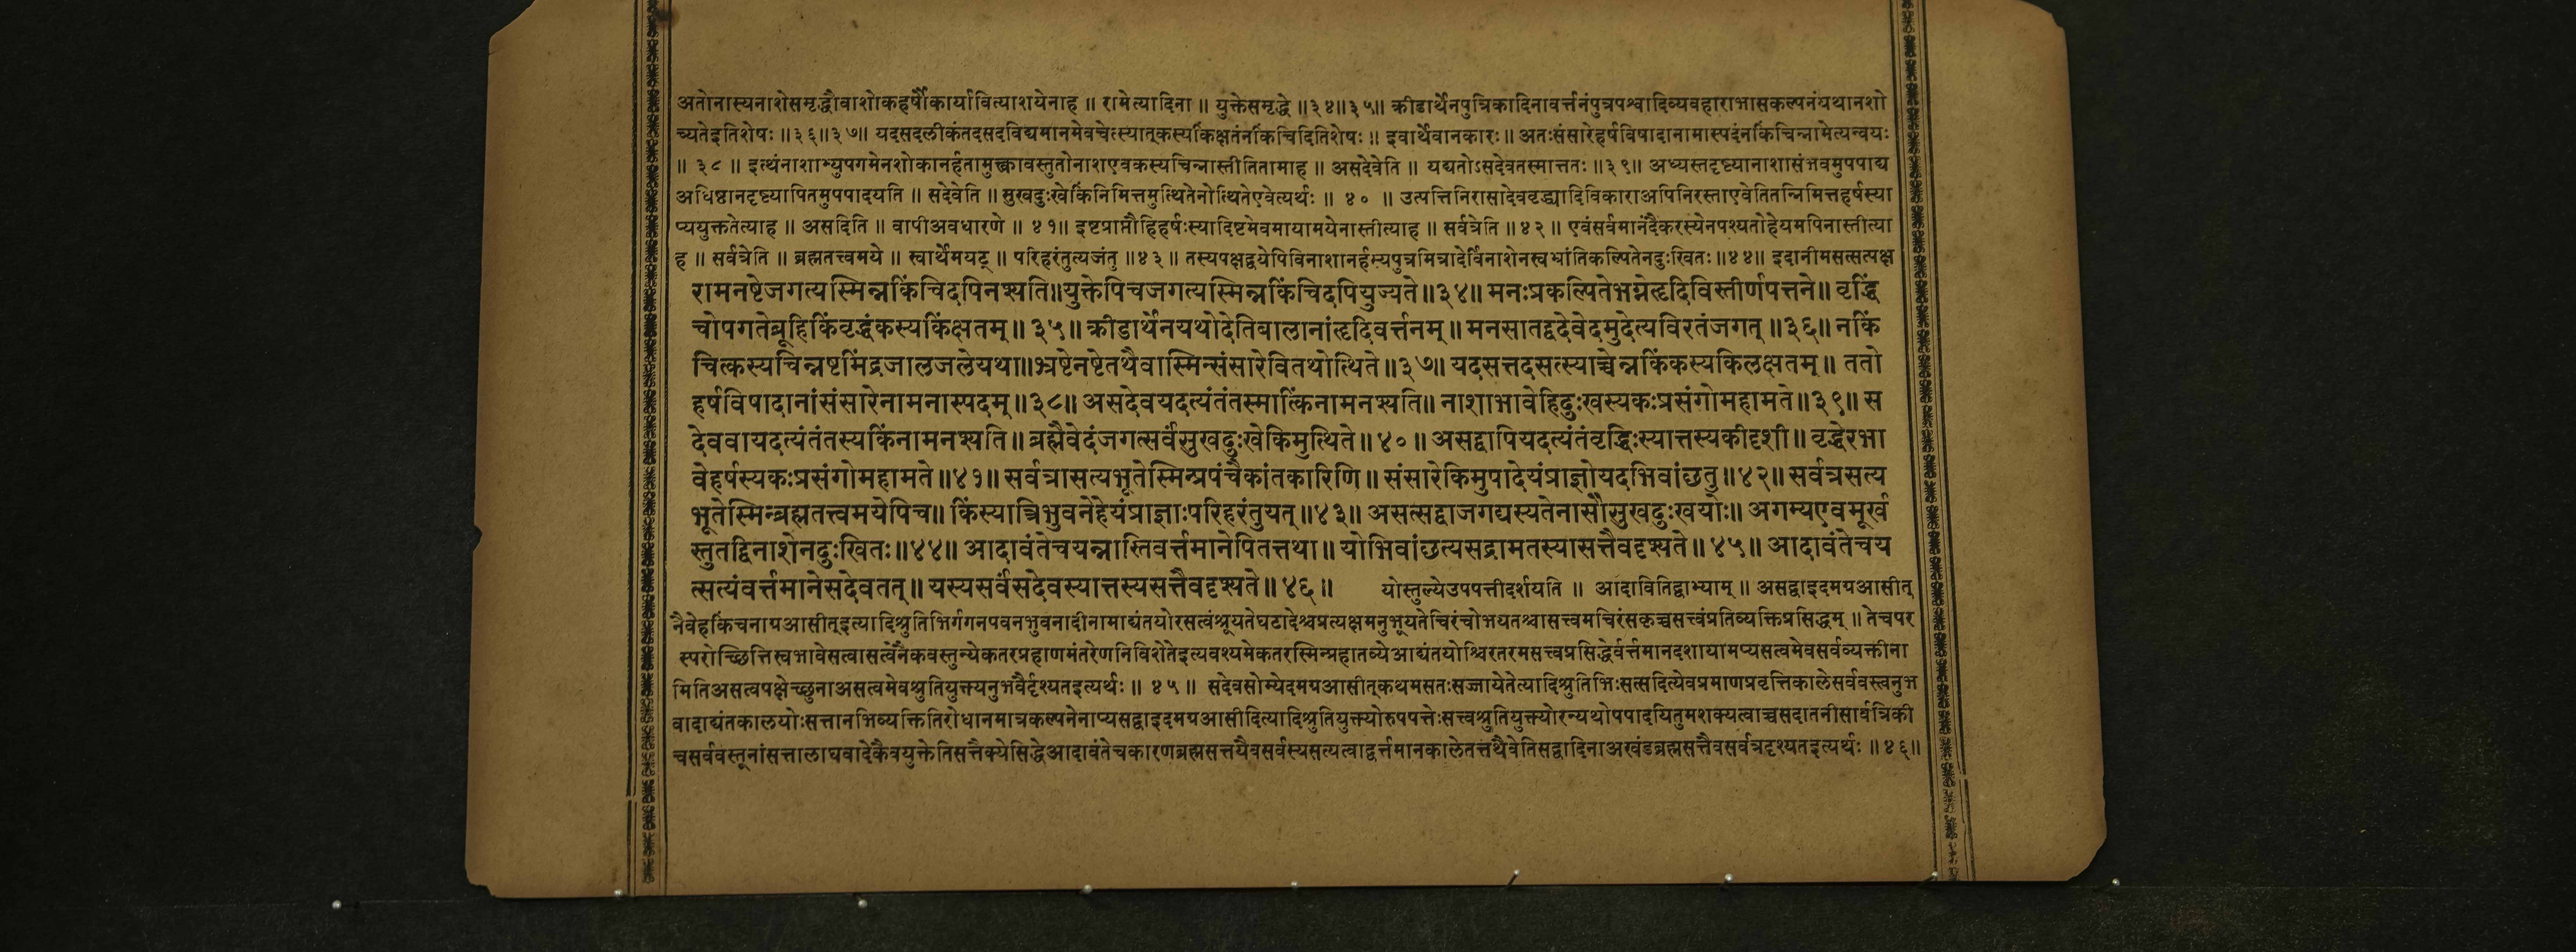 अतोनास्यनाशेसमृद्धौवाशोकहर्षौकार्यावित्याशयेनाह ॥ रामेत्यादिना ॥ युक्तेसमृद्धे ॥३४॥३५॥ क्रीडार्थेनपुत्रिकादिनावर्त्तनंपुत्रपश्वादिव्यवहाराभासकल्पनंयथानशो
च्यतेइतिशेषः ॥३६॥३७॥ यदसदलीकंतदसदविद्यमानमेवचेत्स्यात्कस्यकिंक्षतंनकिंचिदितिशेषः ॥ इवार्थेवानकारः ॥ अतःसंसारेहर्षविषादानामास्पदंनकिंचिन्नामेत्यन्वयः
॥ ३८ ॥ इत्थंनाशाभ्युपगमेनशोकानर्हतामुक्त्वावस्तुतोनाशएवकस्यचिन्नास्तीतितामाह ॥ असदेवेति ॥ यद्यतोऽसदेवतस्मात्ततः ॥३९॥ अध्यस्तदृष्ट्यानाशासंभवमुपपाद्य
अधिष्ठानदृष्ट्यापितमुपपादयति ॥ सदेवेति ॥ सुखदुःखेकिंनिमित्तमुत्थितेनोत्थितेएवेत्यर्थः ॥ ४० ॥ उत्पत्तिनिरासादेववृद्ध्यादिविकाराअपिनिरस्ताएवेतितन्निमित्तहर्षस्या
प्ययुक्ततेत्याह ॥ असदिति ॥ वापीअवधारणे ॥ ४१॥ इष्टप्राप्तौहिहर्षःस्यादिष्टमेवमायामयेनास्तीत्याह ॥ सर्वत्रेति ॥४२॥ एवंसर्वमानंदैकरस्येनपश्यतोहेयमपिनास्तीत्या
ह ॥ सर्वत्रेति ॥ ब्रह्मतत्त्वमये ॥ स्वार्थेमयट् ॥ परिहरंतुत्यजंतु ॥४३॥ तस्यपक्षद्वयेपिविनाशानर्हस्यपुत्रमित्रादेर्विनाशेनस्वभ्रांतिकल्पितेनदुःखितः ॥४४॥ इदानीमसत्सत्पक्ष
रामनष्टेजगत्यस्मिन्नकिंचिदपिनश्यति॥युक्तेपिचजगत्यस्मिन्नकिंचिदपियुज्यते॥३४॥ मनःप्रकल्पितेभग्नेहृदिविस्तीर्णपत्तने॥ वृद्धिं
चोपगतेब्रूहिकिंवृद्धंकस्यकिंक्षतम्॥ ३५॥ क्रीडार्थेनयथोदेतिबालानांहृदिवर्त्तनम्॥ मनसातद्वदेवेदमुदेत्यविरतंजगत् ॥३६॥ नकिं
चित्कस्यचिन्नष्टमिंद्रजालजलेयथा॥भ्रष्टेनष्टेतथैवास्मिन्संसारेवितथोत्थिते॥३७॥ यदसत्तदसत्स्याच्चेन्नकिंकस्यकिलक्षतम्॥ ततो
हर्षविषादानांसंसारेनामनास्पदम्॥३८॥ असदेवयदत्यंतंतस्मात्किंनामनश्यति॥ नाशाभावेहिदुःखस्यकःप्रसंगोमहामते॥३९॥ स
देववायदत्यंतंतस्यकिंनामनश्यति॥ ब्रह्मैवेदंजगत्सर्वंसुखदुःखेकिमुत्थिते॥४०॥ असद्वापियदत्यंतंवृद्धिःस्यात्तस्यकीदृशी॥ वृद्धेरभा
वेहर्षस्यकःप्रसंगोमहामते॥४१॥ सर्वत्रासत्यभूतेस्मिन्प्रपंचैकांतकारिणि॥ संसारेकिमुपादेयंप्राज्ञोयदभिवांछतु॥४२॥ सर्वत्रसत्य
भूतेस्मिन्ब्रह्मतत्त्वमयेपिच॥ किंस्यात्त्रिभुवनेहेयंप्राज्ञाःपरिहरंतुयत्॥४३॥ असत्सद्वाजगद्यस्यतेनासौसुखदुःखयोः॥ अगम्यएवमूर्ख
स्तुतद्विनाशेनदुःखितः॥४४॥ आदावंतेचयन्नास्तिवर्त्तमानेपितत्तथा॥ योभिवांछत्यसद्रामतस्यासत्तैवदृश्यते॥४५॥ आदावंतेचय
त्सत्यंवर्त्तमानेसदेवतत्॥ यस्यसर्वंसदेवस्यात्तस्यसत्तैवदृश्यते॥ ४६॥ योस्तुल्येउपपत्तीदर्शयति ॥ आदावितिद्वाभ्याम् ॥ असद्वाइदमग्रआसीत्
नैवेहकिंचनाग्रआसीत्इत्यादिश्रुतिभिर्गगनपवनभुवनादीनामाद्यंतयोरसत्वंश्रूयतेघटादेश्चप्रत्यक्षमनुभूयतेचिरंचोभयतश्चासत्त्वमचिरंसकृच्चसत्त्वंप्रतिव्यक्तिप्रसिद्धम् ॥ तेचपर
स्परोच्छित्तिस्वभावेसत्वासत्वेनैकवस्तुन्येकतरप्रहाणमंतरेणनिविशेतेइत्यवश्यमेकतरस्मिन्प्रहातव्येआद्यंतयोश्चिरतरमसत्त्वप्रसिद्धेर्वर्त्तमानदशायामप्यसत्वमेवसर्वव्यक्तीना
मितिअसत्वपक्षेच्छुनाअसत्वमेवश्रुतियुक्त्यनुभवैर्दृश्यतइत्यर्थः ॥ ४५ ॥ सदेवसोम्येदमग्रआसीत्कथमसतःसज्जायेतेत्यादिश्रुतिभिःसत्सदित्येवप्रमाणप्रवृत्तिकालेसर्ववस्त्वनुभ
वादाद्यंतकालयोःसत्तानभिव्यक्तितिरोधानमात्रकल्पनेनाप्यसद्वाइदमग्रआसीदित्यादिश्रुतियुक्त्योरुपपत्तेःसत्त्वश्रुतियुक्त्योरन्यथोपपादयितुमशक्यत्वाच्चसदातनीसार्वत्रिकी
चसर्ववस्तूनांसत्तालाघवादेकैवयुक्तेतिसत्तैक्येसिद्धेआदावंतेचकारणब्रह्मसत्तयैवसर्वस्यसत्यत्वाद्वर्त्तमानकालेतत्तथैवेतिसद्वादिनाअखंडब्रह्मसत्तैवसर्वत्रदृश्यतइत्यर्थः ॥४६॥